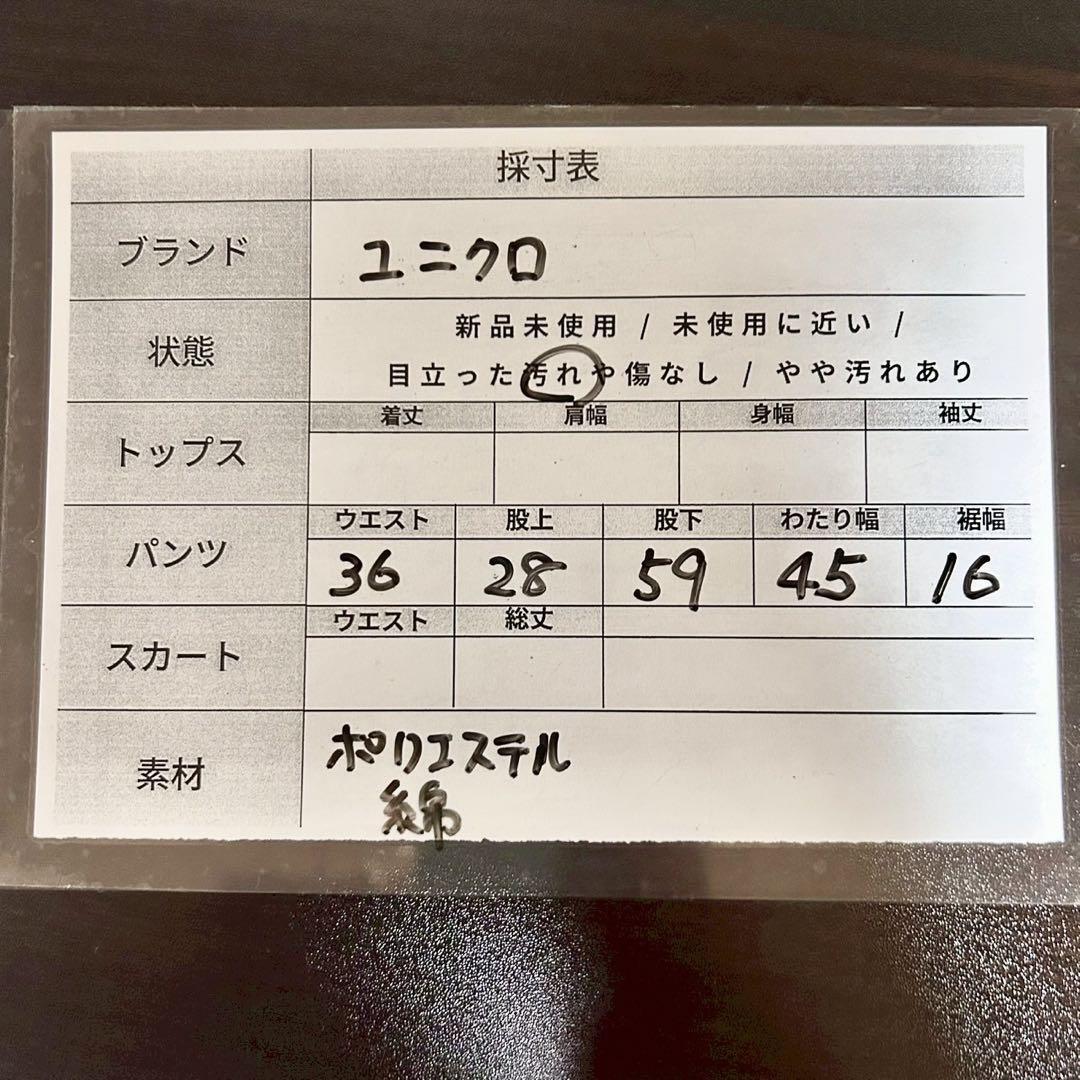 採寸表
ブランド ユニクロ
状態 新品未使用 / 未使用に近い /
目立った汚れや傷なし / やや汚れあり
トップス 着丈 肩幅 身幅 袖丈
パンツ ウエスト 股上 股下 わたり幅 裾幅
36 28 59 45 16
スカート ウエスト 総丈
素材 ポリエステル
綿